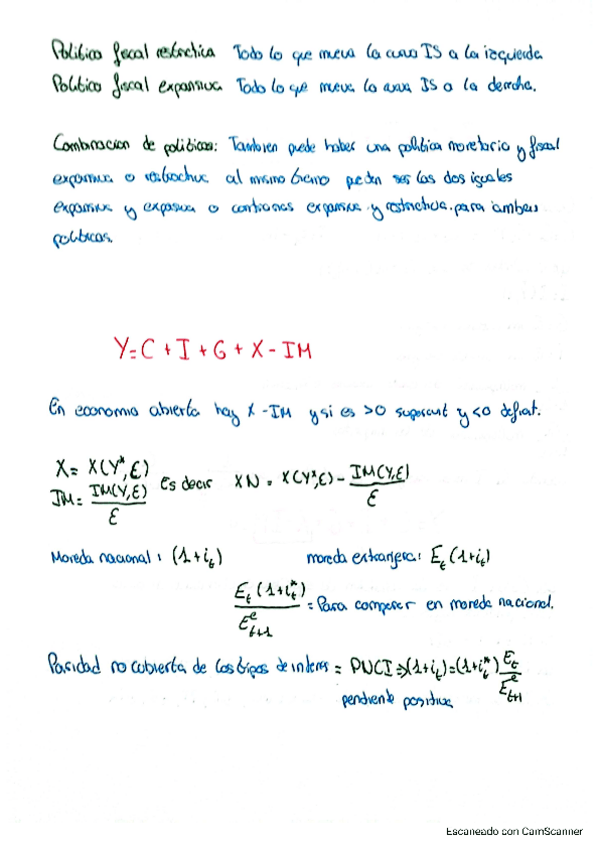 Politica fiscal restrictica Todo lo que mueva la curva IS a la izquierda
Politica fiscal expansiva Todo lo que mueva la curva IS a la derecha.
Combinacion de politicas: Tambien puede haber una politica monetaria y fiscal
expansiva o restrictiva al mismo tiempo pueden ser las dos iguales
expansiva y expansiva o contrarias expansiva y restrictiva para ambas
politicas.
Y=C+I+G+X-IM
En economia abierta hay X-IM y si es >0 superavit y <0 deficit.
X= X(Y*,ε)
IM= IM(Y,ε)/ε Es decir XN = X(Y*,ε) - IM(Y,ε)/ε
Moneda nacional: (1+i_t) moneda extranjera: E_t(1+i_t)
E_t(1+i_t*)/E^e_t+1 = Para comparar en moneda nacional.
Paridad no cubierta de los tipos de interes = PNCI => (1+i_t)=(1+i_t*) E_t/E^e_t+1
pendiente positiva
Escaneado con CamScanner